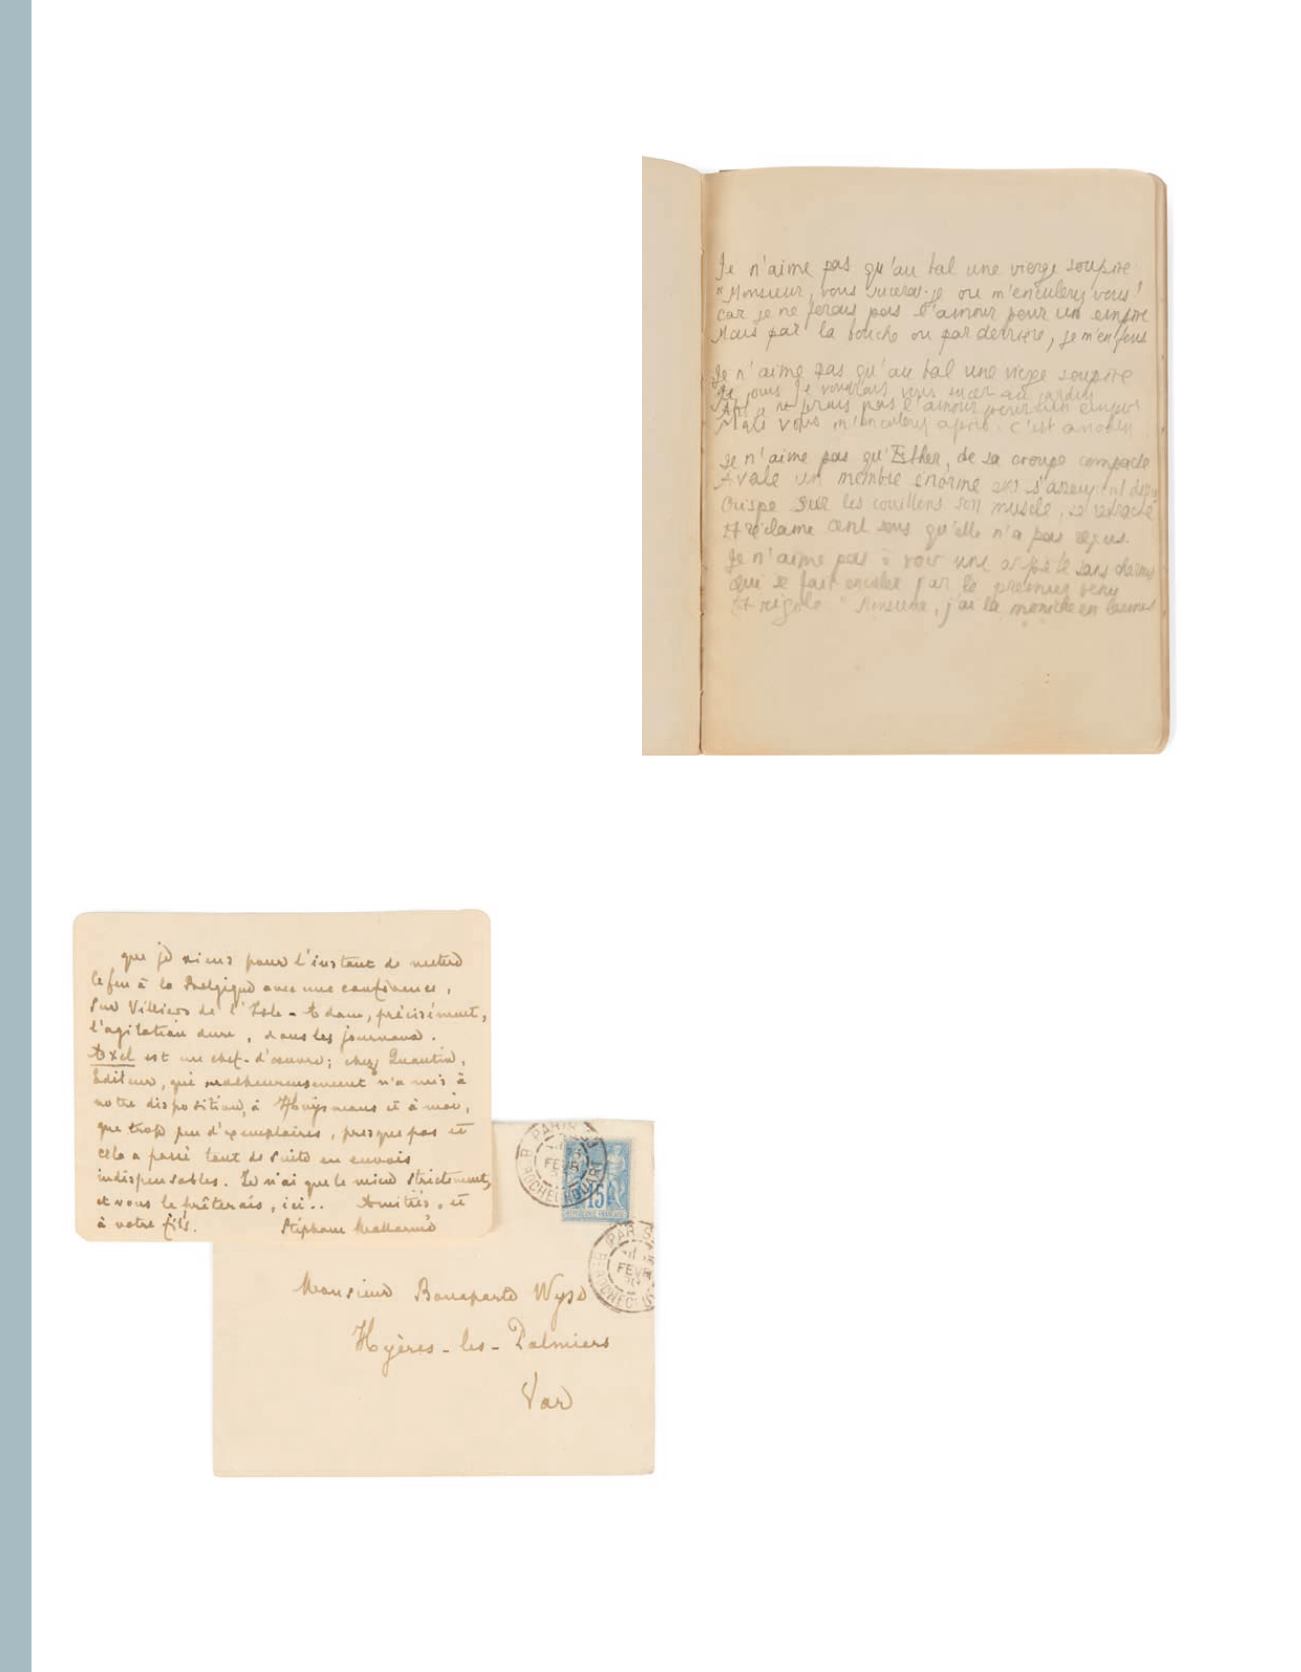 Je n'aime pas qu'au bal une vierge soupire
"Monsieur, vous sucerai-je ou m'enculez vous!
Car je ne ferais pas l'amour pour un empire
Mais par la bouche ou par derrière, je m'en fous
Je n'aime pas qu'au bal une vierge soupire
Je jouis Je voudrais vous sucer au jardin
ne ferais pas l'amour pour un empire
Mais vous m'enculerez après. C'est anodin
Je n'aime pas qu'Esther, de sa croupe compacte
Avale un membre énorme
Crispe sur les couillons son muscle, se rétracte
Et réclame cent sous qu'elle n'a pas reçus.
Je n'aime pas à voir une sans charmes
Qui se fait enculer par le premier venu
Et rigole "Monsieur, j'ai la moniche en larmes
que je viens pour l'instant de mettre
le feu à la Belgique avec une conférence,
sur Villiers de l'Isle-Adam, précisément,
l'agitation dure, dans les journaux.
Axel est un chef-d'œuvre; chez Quantin,
Editeur, qui malheureusement n'a mis à
notre disposition, à Huysmans et à moi,
que trop peu d'exemplaires, presque pas et
cela a passé tout de suite en envois
indispensables. Je n'ai que le mien strictement,
et vous le prêterais, ici.. Amitiés, et
à votre fils. Stéphane Mallarmé
PARIS
FEVR
R. ROCHECHOUART
15
REPUBLIQUE FRANCAISE
PARIS
FEVR
90
Monsieur Bonaparte Wyse
Hyères-les-Palmiers
Var